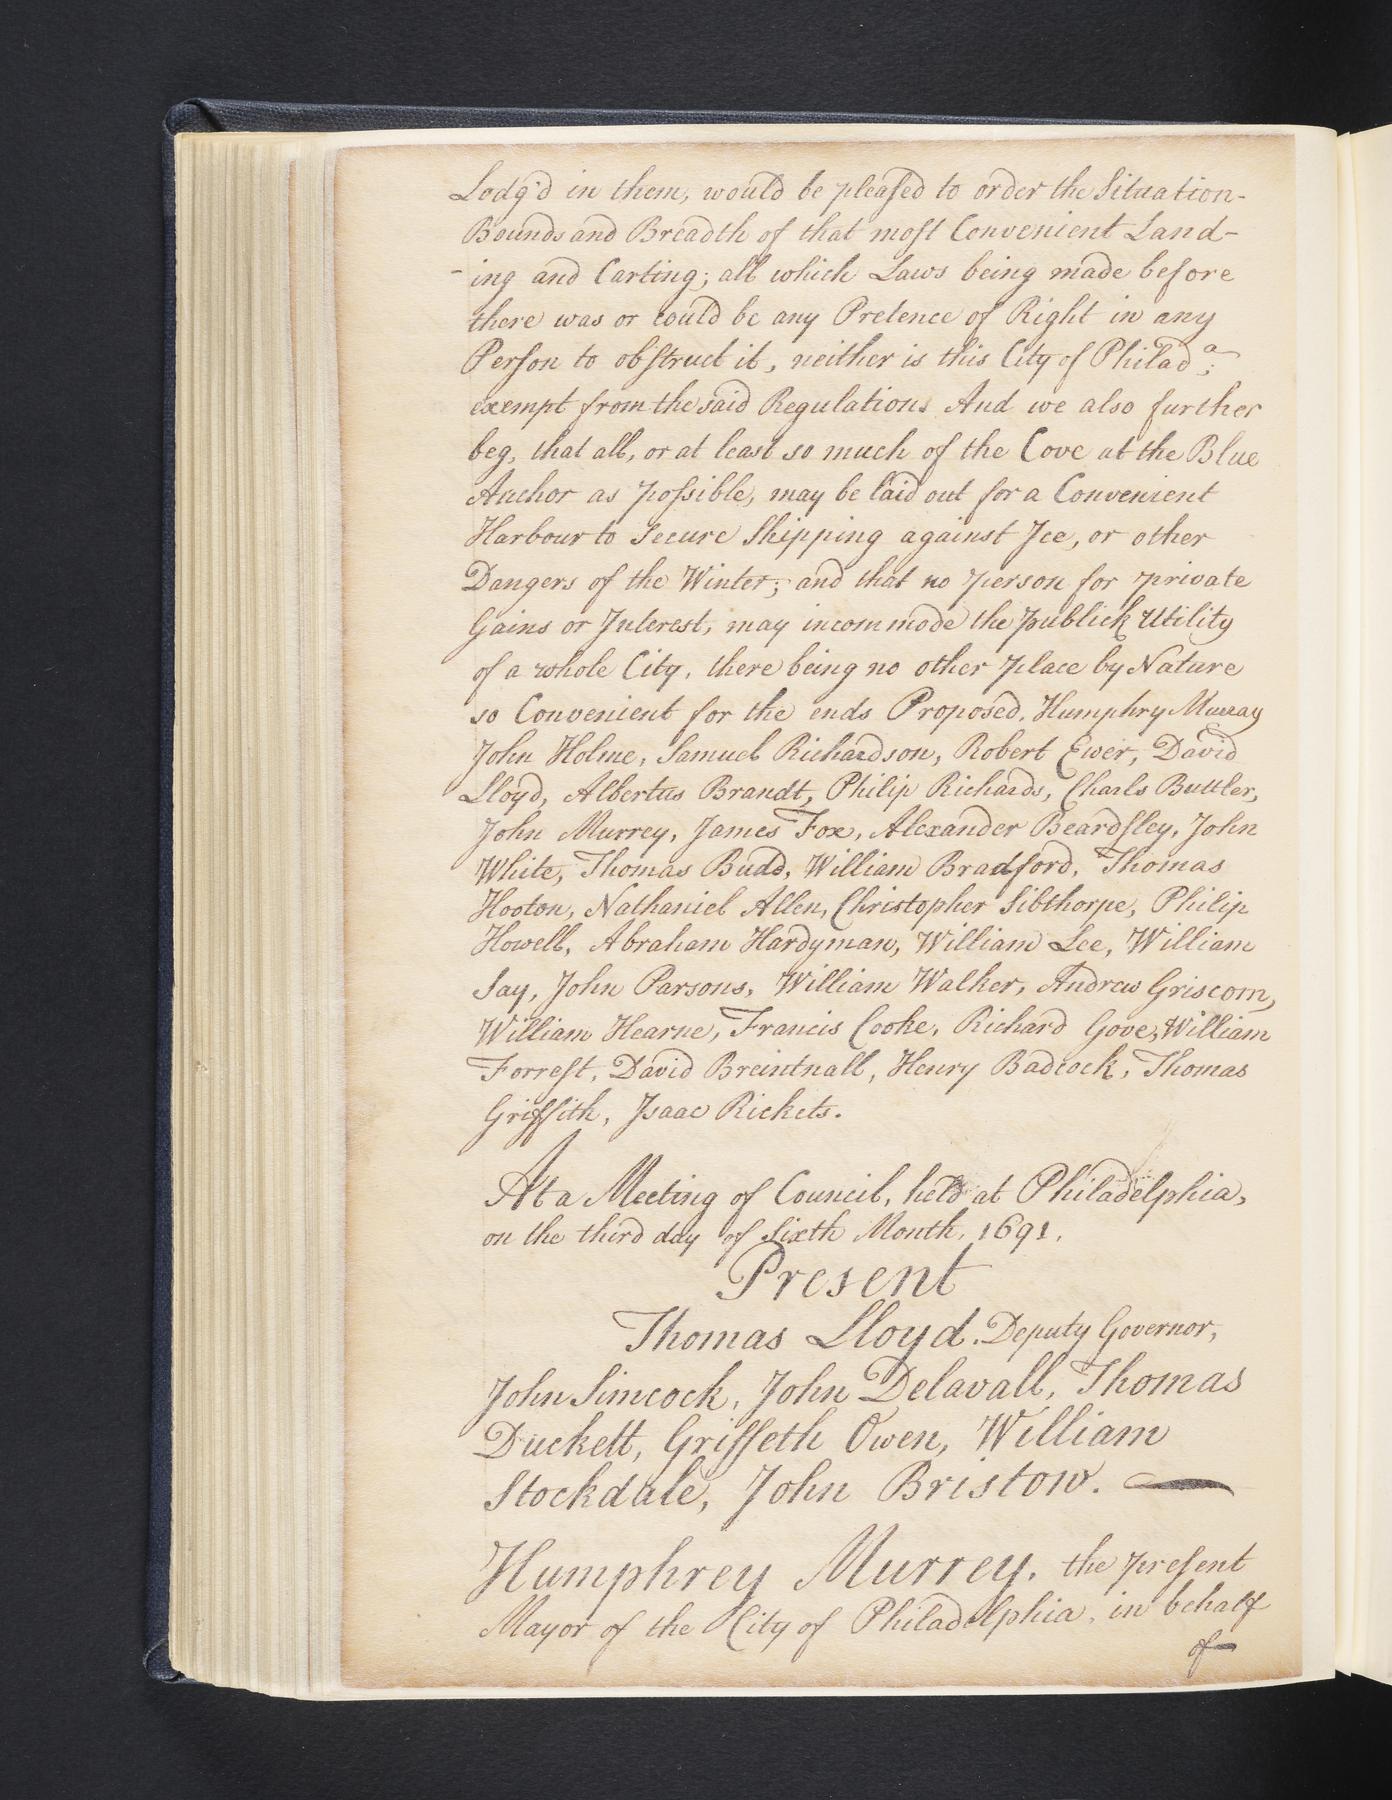 Lodg'd in them, would be pleased to order the Situation-
Bounds and Breadth of that most Convenient Land-
-ing and Carting; all which Laws being made before
there was or could be any Pretence of Right in any
Person to obstruct it, neither is this City of Philad.a;
exempt from the said Regulations And we also further
beg, that all, or at least so much of the Cove at the Blue
Anchor as possible, may be laid out for a Convenient
Harbour to Secure Shipping against Ice, or other
Dangers of the Winter; and that no person for private
Gains or Interest, may incommode the publick Utility
of a whole City, there being no other place by Nature
so Convenient for the ends Proposed. Humphry Murray
John Holme, Samuel Richardson, Robert Ewer, David
Lloyd, Albertus Brandt, Philip Richards, Charls Buttler,
John Murrey, James Fox, Alexander Beardsley, John
White, Thomas Budd, William Bradford, Thomas
Hooton, Nathaniel Allen, Christopher Sibthorpe, Philip
Howell, Abraham Hardyman, William Lee, William
Say, John Parsons, William Walker, Andrew Griscom,
William Hearne, Francis Cooke, Richard Gove, William
Forrest, David Breintnall, Henry Badcock, Thomas
Griffith, Isaac Rickets.
At a Meeting of Council, held at Philadelphia,
on the third day of Sixth Month, 1691.
Present
Thomas Lloyd. Deputy Governor,
John Simcock, John Delavall, Thomas
Duckett, Griffeth Owen, William
Stockdale, John Bristow.
Humphrey Murrey, the present
Mayor of the City of Philadelphia, in behalf
of